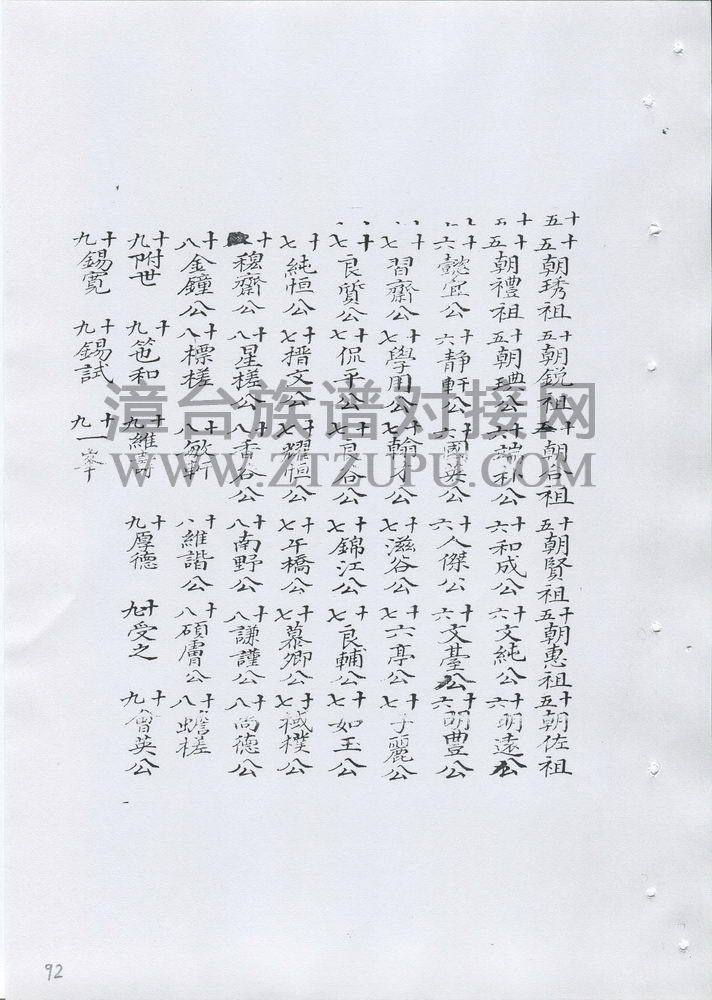 十五朝琇祖 十五朝銳祖 十五朝台祖 十五朝賢祖 十五朝惠祖 十五朝佐祖
十五朝禮祖 十五朝璵公 十六端秋公 十六和成公 十六文純公 十六明遠公
十六懿宜公 十六靜軒公 十六國英公 十六人傑公 十六文臺公 十六明豊公
十七習齋公 十七學用公 十七翰才公 十七滋谷公 十七六亭公 十七于麗公
十七良質公 十七侃乎公 十七良谷公 十七錦江公 十七良輔公 十七如玉公
十七純恒公 十七搢文公 十七耀恒公 十七平橋公 十七慕卿公 十七棫樸公
十穆齋公 十八星槎公 十八香谷公 十八南野公 十八謙謹公 十八尚德公
十八金鐘公 十八標槎 十八敏軒 十八維諧公 十八碩膚公 十八蟾槎
十九附世 十九笆和 十九維嵩 十九厚德 十九受之 十九會英公
十九錫寬 十九錫試 十九一峯
漳台族谱对接网
WWW.ZTZUPU.COM
92